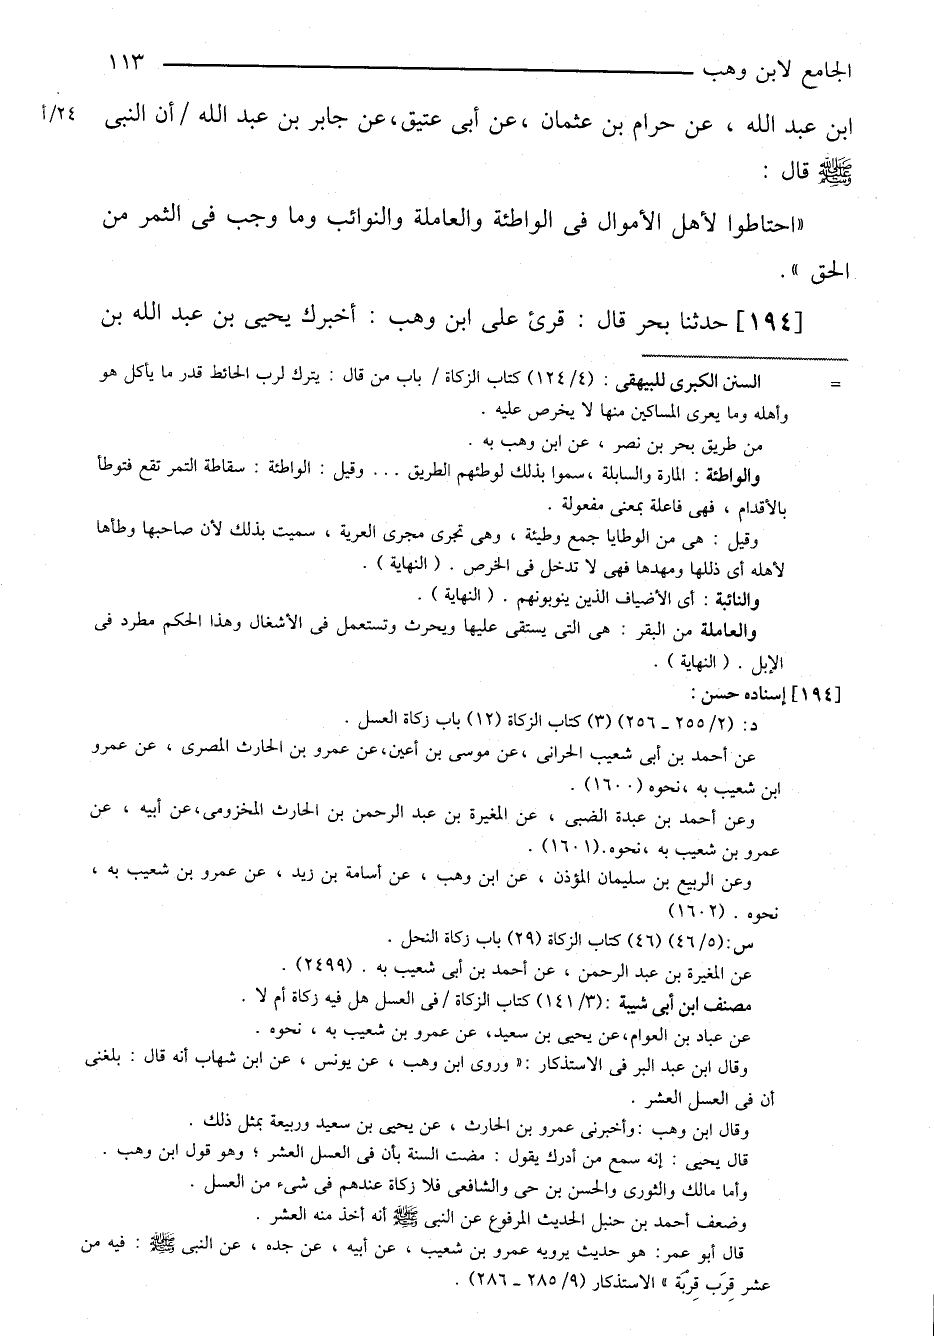 الجامع لابن وهب ١١٣
ابن عبد الله ، عن حرام بن عثمان ،عن أبى عتيق،عن جابر بن عبد الله / أن النبى ٢٤/أ
ﷺ قال :
«احتاطوا لأهل الأموال فى الواطئة والعاملة والنوائب وما وجب فى الثمر من
الحق » .
[١٩٤] حدثنا بحر قال : قرئ على ابن وهب : أخبرك يحيى بن عبد الله بن
= السنن الكبرى للبيهقى : (٤/ ١٢٤) كتاب الزكاة / باب من قال : يترك لرب الحائط قدر ما يأكل هو
وأهله وما يعرى المساكين منها لا يخرص عليه .
من طريق بحر بن نصر ، عن ابن وهب به .
والواطئة : المارة والسابلة ،سموا بذلك لوطئهم الطريق ... وقيل : الواطئة : سقاطة التمر تقع فتوطأ
بالأقدام ، فهى فاعلة بمعنى مفعولة .
وقيل : هى من الوطايا جمع وطيئة ، وهى تجرى مجرى العرية ، سميت بذلك لأن صاحبها وطأها
لأهله أى ذللها ومهدها فهى لا تدخل فى الخرص . ( النهاية ) .
والنائبة : أى الأضياف الذين ينوبونهم . ( النهاية ) .
والعاملة من البقر : هى التى يستقى عليها ويحرث وتستعمل فى الأشغال وهذا الحكم مطرد فى
الإبل . ( النهاية ) .
[١٩٤] إسناده حسن :
د: (٢/ ٢٥٥ ـ ٢٥٦) (٣) كتاب الزكاة (١٢) باب زكاة العسل .
عن أحمد بن أبى شعيب الحرانى ،عن موسى بن أعين،عن عمرو بن الحارث المصرى ، عن عمرو
ابن شعيب به ،نحوه (١٦٠٠) .
وعن أحمد بن عبدة الضبى ، عن المغيرة بن عبد الرحمن بن الحارث المخزومى،عن أبيه ، عن
عمرو بن شعيب به ،نحوه.(١٦٠١) .
وعن الربيع بن سليمان المؤذن ، عن ابن وهب ، عن أسامة بن زيد ، عن عمرو بن شعيب به ،
نحوه . (١٦٠٢)
س:(٥/ ٤٦) (٤٦) كتاب الزكاة (٢٩) باب زكاة النحل .
عن المغيرة بن عبد الرحمن ، عن أحمد بن أبى شعيب به . (٢٤٩٩) .
مصنف ابن أبى شيبة :(٣/ ١٤١) كتاب الزكاة / فى العسل هل فيه زكاة أم لا .
عن عباد بن العوام،عن يحيى بن سعيد، عن عمرو بن شعيب به ، نحوه .
وقال ابن عبد البر فى الاستذكار :« وروى ابن وهب ، عن يونس ، عن ابن شهاب أنه قال : بلغنى
أن فى العسل العشر .
وقال ابن وهب :وأخبرنى عمرو بن الحارث ، عن يحيى بن سعيد وربيعة بمثل ذلك .
قال يحيى : إنه سمع من أدرك يقول : مضت السنة بأن فى العسل العشر ؛ وهو قول ابن وهب .
وأما مالك والثورى والحسن بن حى والشافعى فلا زكاة عندهم فى شىء من العسل .
وضعف أحمد بن حنبل الحديث المرفوع عن النبى ﷺ أنه أخذ منه العشر .
قال أبو عمر: هو حديث يرويه عمرو بن شعيب ، عن أبيه ، عن جده ، عن النبى ﷺ : فيه من
عشر قِرَب قِرْبة » الاستذكار (٩/ ٢٨٥ ـ ٢٨٦) .